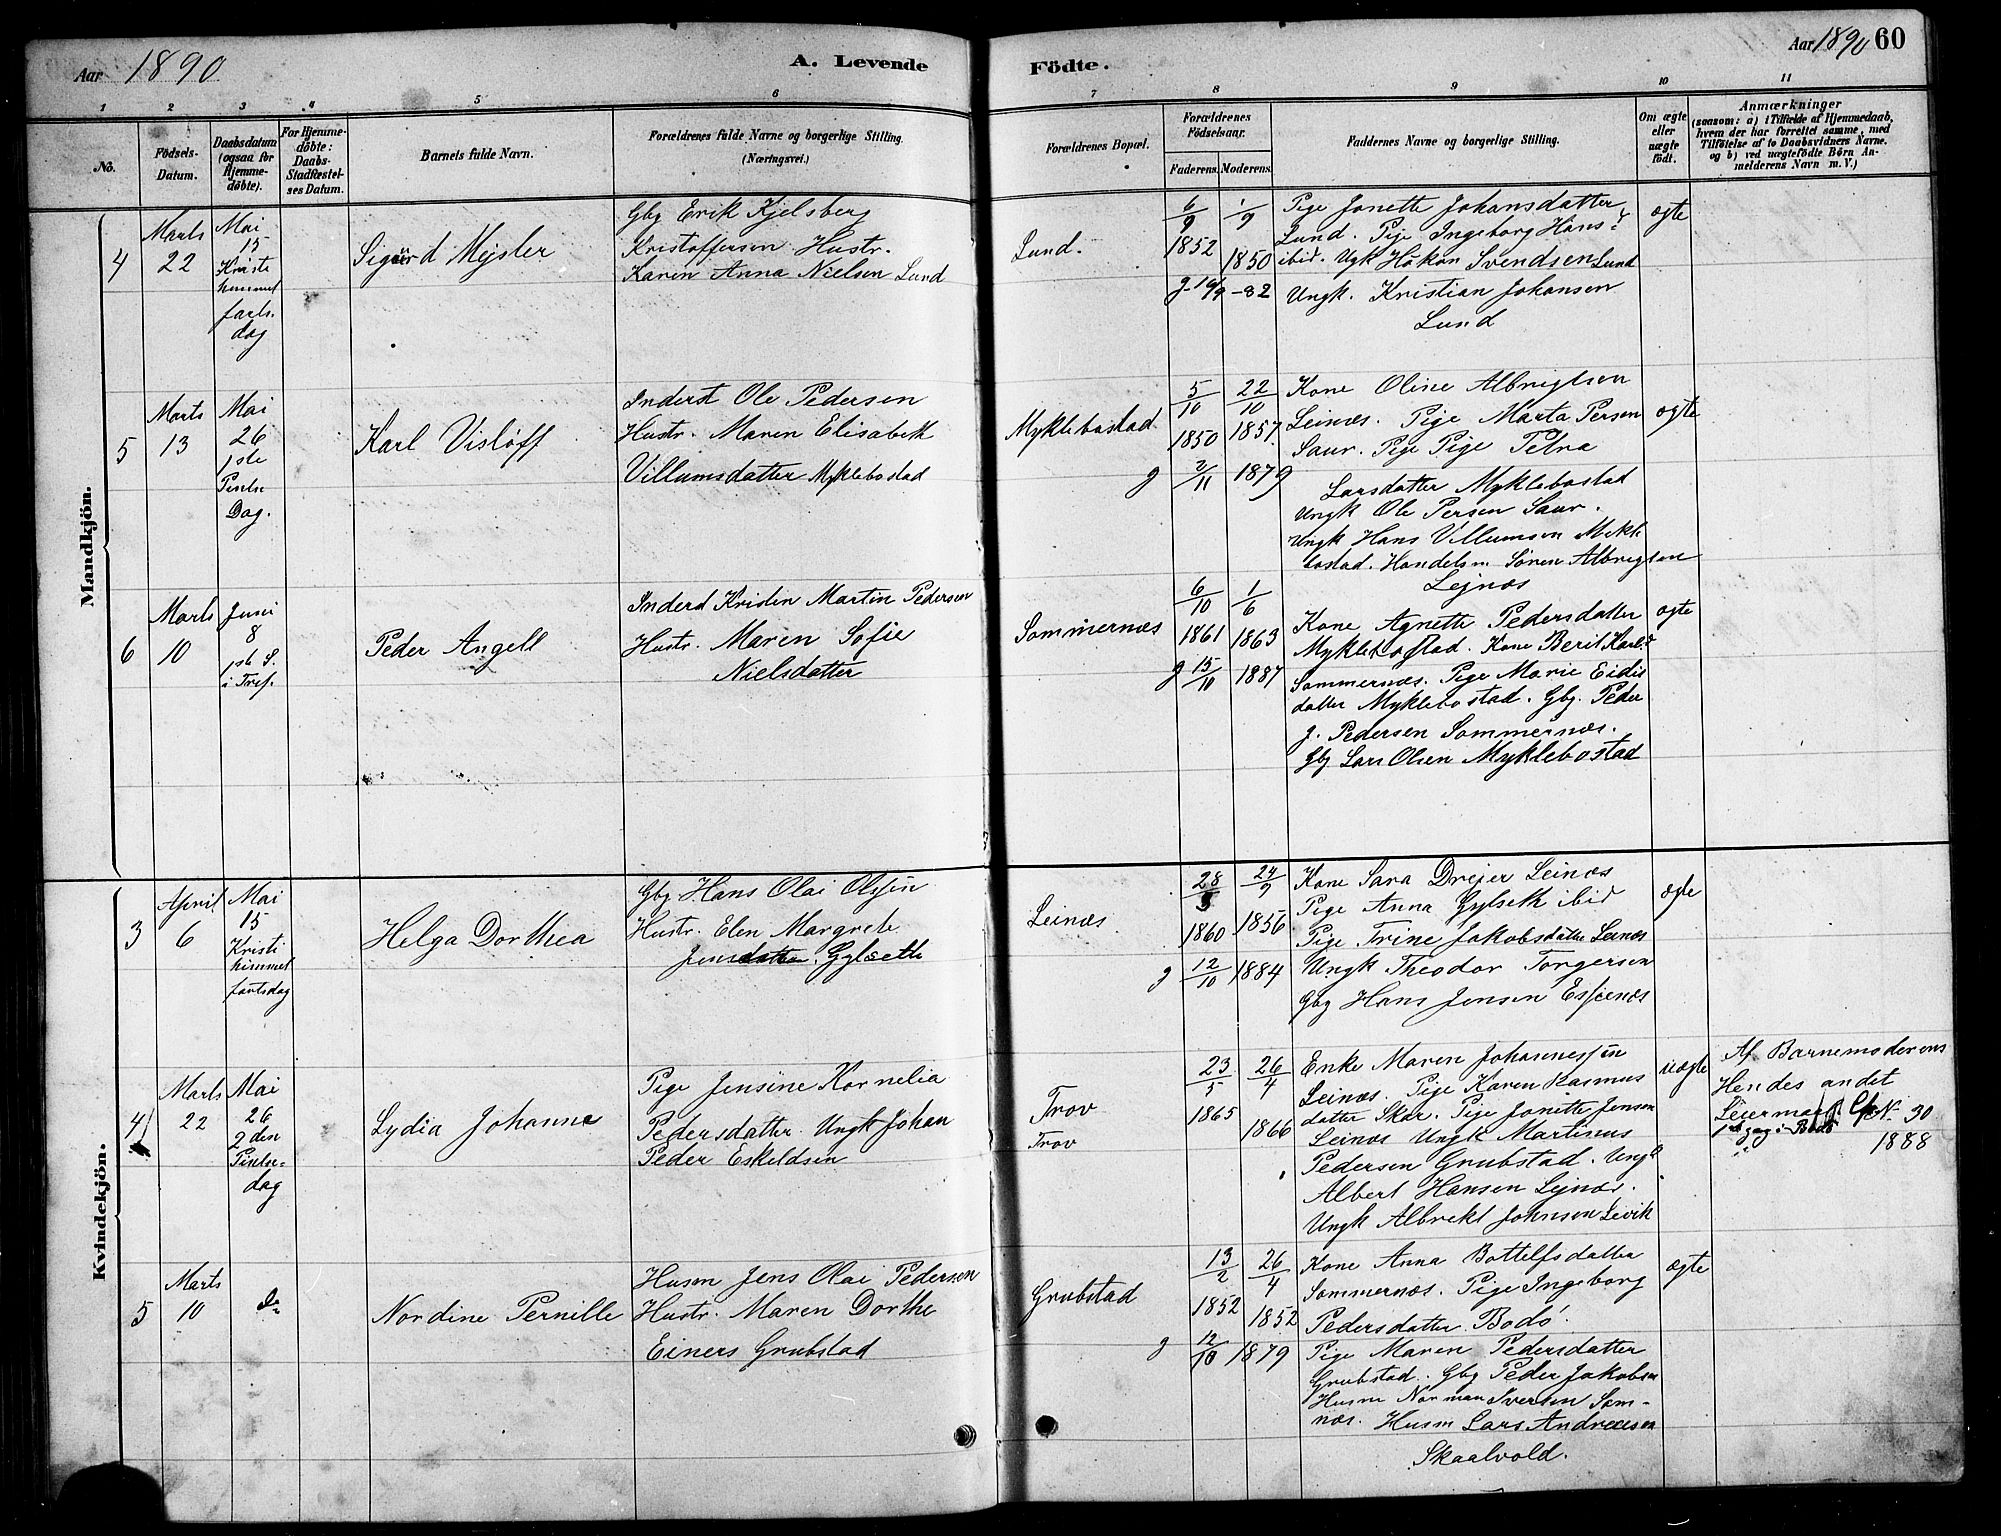 Aar 1890
A. Levende
Födte.
Aar 1890 60
1 2 3 4 5 6 7 8 9 10 11
No.
Födsels-Datum.
Daabsdatum (ogsaa for Hjemmedöbte).
For Hjemmedöbte: Daabs-Stadfæstelses Datum.
Barnets fulde Navn.
Forældrenes fulde Navne og borgerlige Stilling.
(Næringsvei.)
Forældrenes Bopæl.
Forældrenes Födselsaar.
Faderens. Moderens.
Faddernes Navne og borgerlige Stilling.
Om ægte eller uægte födt.
Anmærkninger
(saasom: a) i Tilfælde af Hjemmedaab, hvem der har forrettet samme, med Tilföielse af to Daabsvidners Navne. og b) ved uægtefödte Börn Anmelderens Navn m. V.)
Mandkjön.
4
Marts
22
Mai
15
Kristi
himmel
farts.
dag
Sigurd Mejsler
Gbg Erik Kjelsberg
Kristoffersen Hustr.
Karen Anna Nielsen Lund
Lund.
6/9
1852
1/9
1850
g. 19/9 -82
Pige Jonette Johansdatter
Lund. Pige Ingeborg Hans
ibid. Ugk Håkon Svendsen Lund
Ungk. Kristian Johansen
Lund
ægte
5
Marts
13
Mai
26
1ste
Pintse
Dag.
Karl Visløff
Inderst Ole Pedersen
Hustr. Maren Elisabet
Villumsdatter Myklebostad
Myklebostad.
5/10
1850
22/10
1857
g 2/11 1879
Kone Oline Albrigtsen
Leinæs. Pige Marta Persen
Saur. Pige Pige Petra
Larsdatter Myklebostad
Ungk Ole Persen Saur.
Ungk Hans Villumsen Mykle
bostad. Handelsm. Sören Albrigtsen
Lejnæs
ægte
6
Marts
10
Juni
8
1ste S.
i Tref.
Peder Angell
Inderst Kristin Martin Pedersen
Hustr. Maren Sofie
Nielsdatter
Sommernæs
6/10
1861
1/6
1863
g 15/10 1887
Kone Agnette Pedersdatter
Myklebostad. Kone Berit Karl
Sommernæs. Pige Marie Eidis
datter Myklebostad. Gbg. Peder
J. Pedersen Sommernæs.
Gbg Lars Olsen Myklebostad
ægte
Kvindekjön.
3
April
6
Mai
15
Kristi
himmel
fartsdag
Helga Dorthea
Gbg Hans Olai Olsen
Hustr. Elen Margrete
Jensdatter Gylseth
Leinæs
28
1860
24/9
1856
g 12/10 1884
Kone Sara Drejer Leinæs
Pige Anna Gylseth ibid
Pige Trine Jakobsdatter Leinæs
Ungk Theodor Torgersen
Gbg Hans Jensen
ægte
4
Marts
22
Mai
26
2den
Pintse-
dag
Lydia Johanna
Pige Jensine Kornelia
Pedersdatter. Ungk Johan
Peder Eskeldsen
Trov
Trov
23/5
1865
26/4
1866
Enke Maren Johannessen
Leinæs. Pige Karen Rasmus
datter Skar. Pige Jonette Jensen
Leinæs Ungk Martinus
Pedersen Grubstad. Ungk
Albert Hansen Lejnæs.
Ungk Albrekt Johnsen Leivik
uægte
Af Barnemoderens
Hendes andet
Leiermaal. Cf. No 30
1888
5
Marts
10
do
Nordine Pernille
Husm Jens Olai Pedersen
Hustr. Maren Dorthe
Einers Grubstad
Grubstad
13/2
1852
26/4
1852
g 12/10 1879
Kone Anna Bottelfsdatter
Sommernæs. Pige Ingeborg
Pedersdatter Bodö.
Pige Maren Pedersdatter
Grubstad. Gbg Peder Jakobsen
Husm Norman Sversen Som-
næs. Husm Lars Andreesen
Skaalvold.
ægte